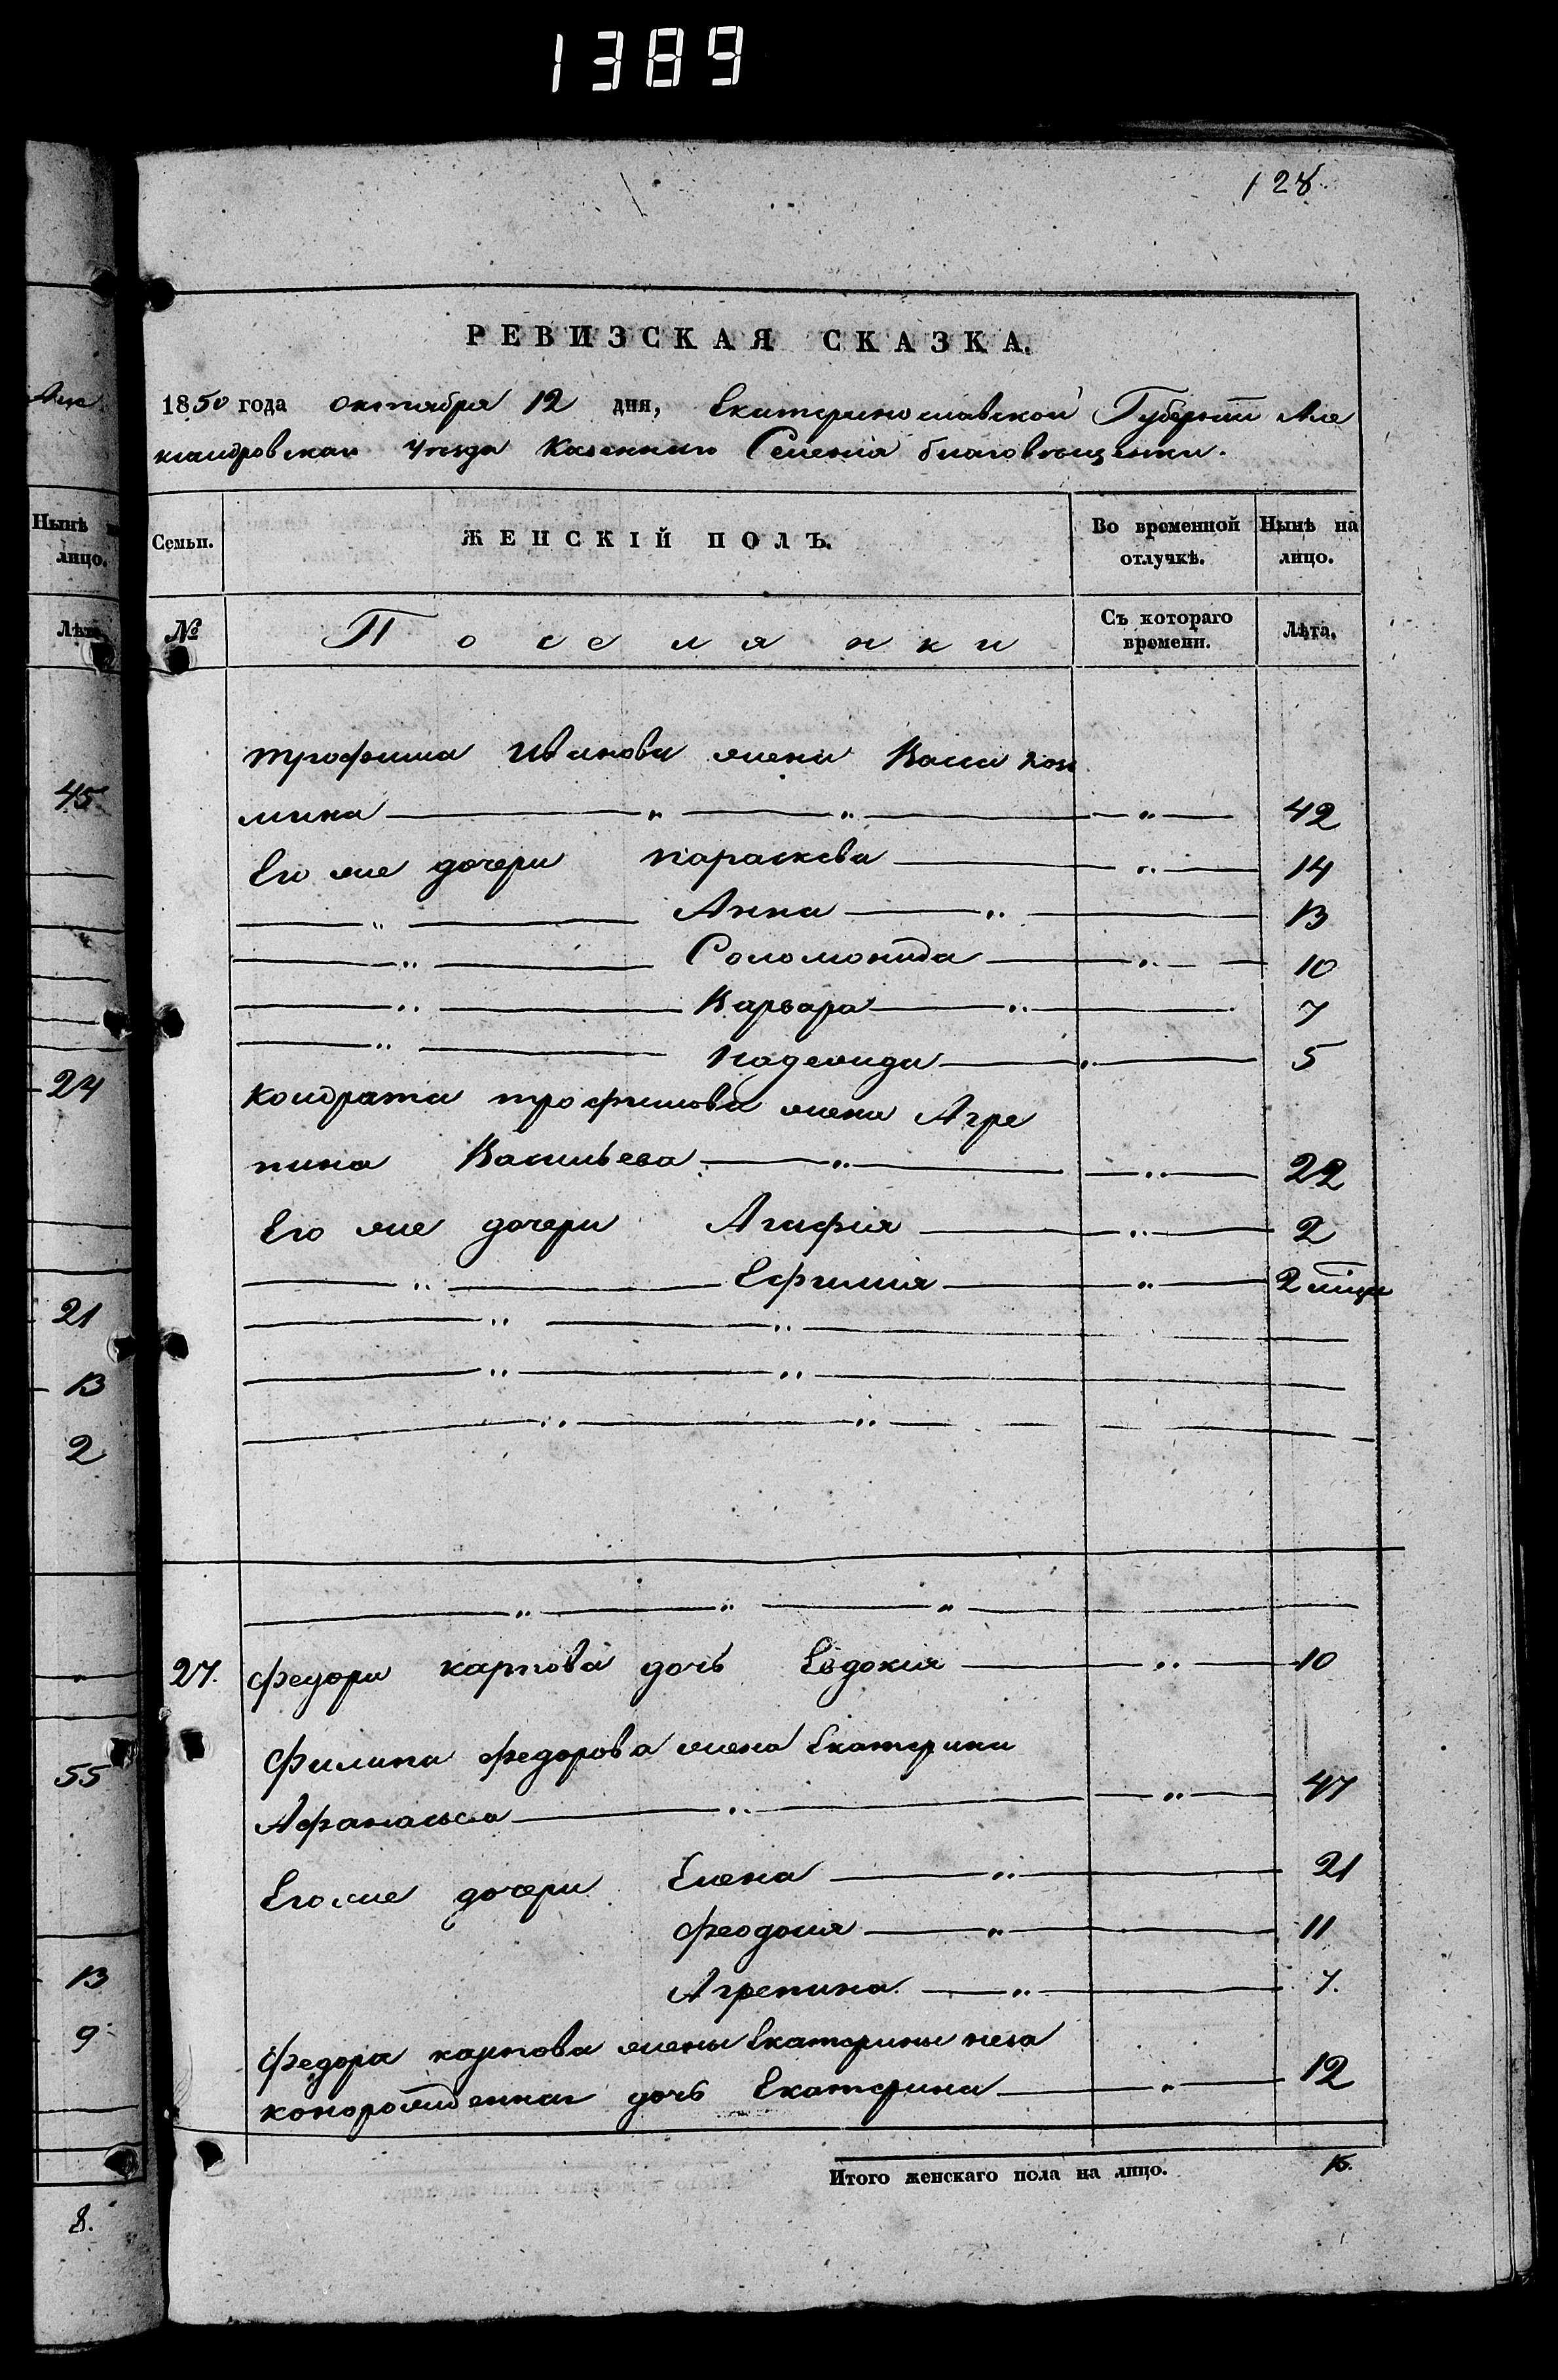 1389
128
РЕВИЗСКАЯ СКАЗКА.
1850 года октября 12 дня, Екатеринославской Губернии Але
ксандровскаго Уѣзда Казеннаго Селенія благовѣщенки.
Семьи. ЖЕНСКІЙ ПОЛЪ. Во временной отлучкѣ. Нынѣ на лицо.
№ Поселянки Съ котораго времени. Лѣта.
трофима Иванова жена Васи
42
Его же дочери параскева — „ — 14
— „ — Анна — „ — 13
— „ — Соломонида — „ — 10
— „ — Варвара — „ — 7
— „ — Надежда — „ — 5
Кондрата трофимова жена Агре
пина Васильева — „ — „ — 22
Его же дочери Агафия — „ — 2
— „ — Ефимия — „ — 2
27. федора карпова дочь Евдокия — „ — 10
Филипа федорова жена Екатерина
Афанасьева — „ — „ — 47
Его же дочери Елена — „ — 21
феодосия — „ — 11
Агрепина — „ — 7.
Федора карпова жены Екатерины неза
конорожденная дочь Екатерина — „ — 12
Итого женскаго пола на лицо. 15.
Нынѣ
лицо.
Лѣта
45
24
21
13
2
55
13
9
8.